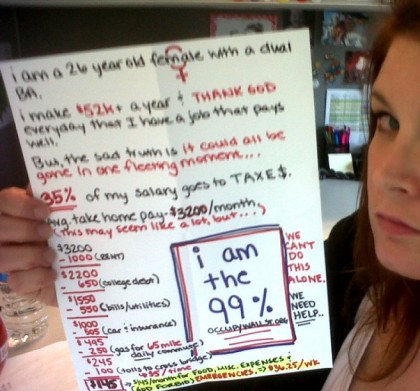 i am a 26 year old female with a dual
BA.
i make $52K+ a year & THANK GOD
everyday that I have a job that pays
well.
But, the sad truth is it could all be
gone in one fleeting moment...
35% of my salary goes to TAXE$.
Avg. take home pay - $3200/month
(this may seem like a lot, but...)
$3200
- 1000 (RENT)
$2200
- 650 (college debt)
$1550
- 550 (bills/utilities)
$1000
- 505 (car & insurance)
$495
- 250 (gas for 65 mile
daily commute)
$245
- 100 (tolls to cross bridge)
$5/time
$145 → $145/month for FOOD, MISC. EXPENSES &
(GOD FORBID) EMERGENCIES. → $36.25/WK
i am
the
99%
OCCUPYWALLST.ORG
WE
CANT
DO
THIS
ALONE.
WE
NEED
HELP..